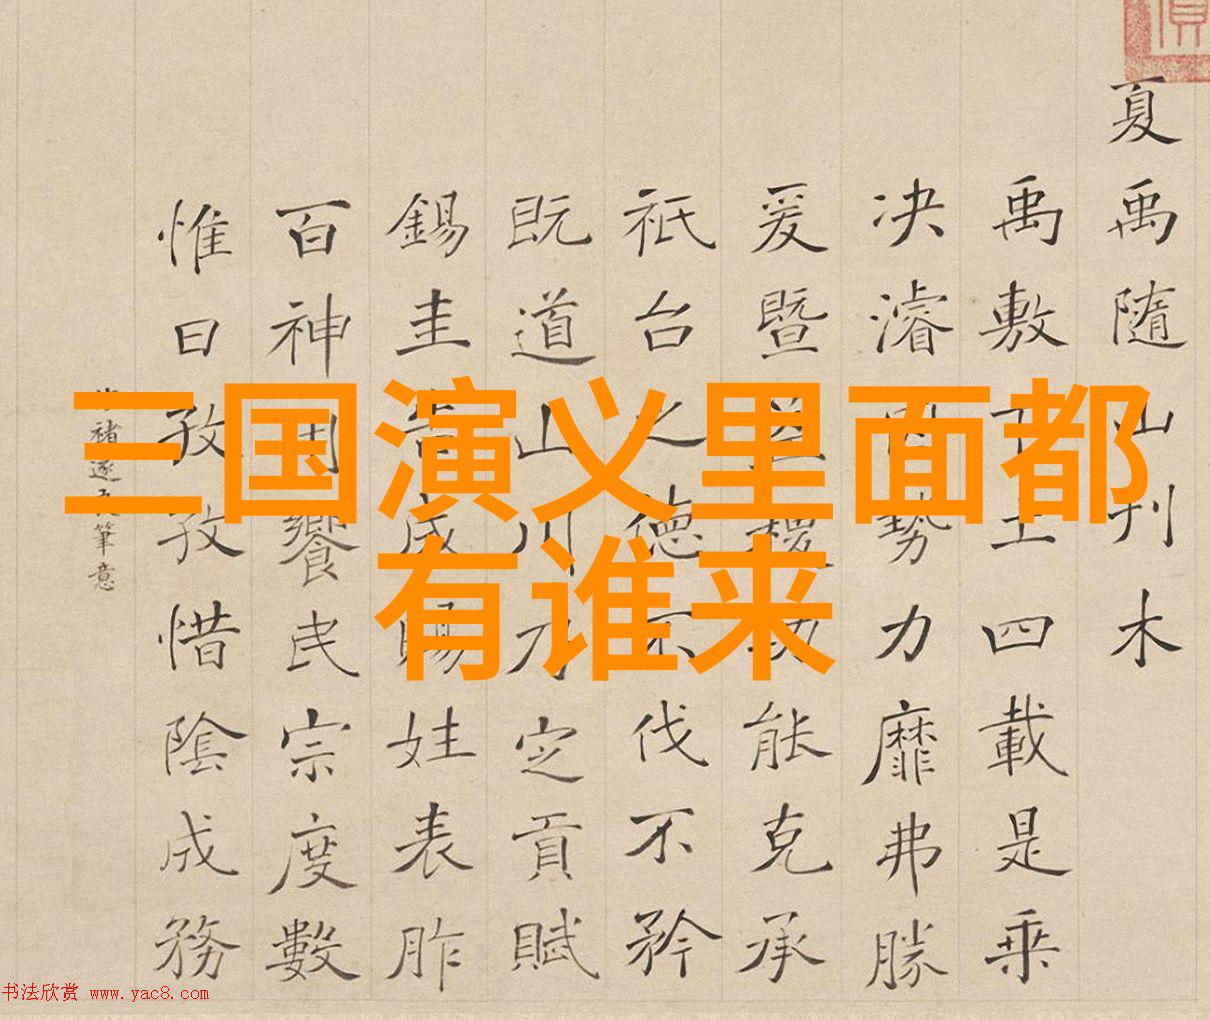 三国演义里面都
有谁来
夏禹隨山刊木
禹敷下土四載是乗
决濬勢力靡弗勝
爰暨益稷能克承
祇台之德不伐不矜
既道山川乃定貢賦
錫圭告成賜姓表胙
百神饗民宗度數
惟日孜孜惜陰成務
褚遂良筆意
书法欣赏 www.yac8.com